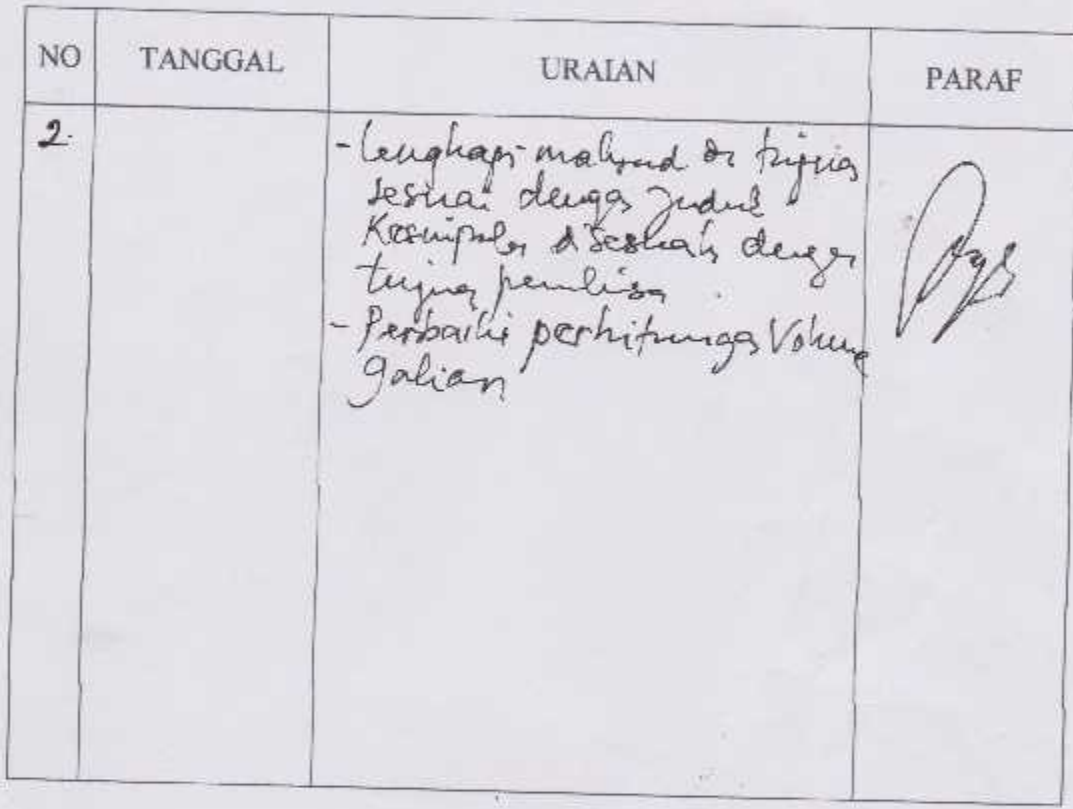 NO TANGGAL URAIAN PARAF
2.
- Lengkapi maksud dn tujuan
sesuai dengan judul
Kesimpulan disesuaikn dengan
tujuan penulisan
- Perbaiki perhitungan Volume
galian